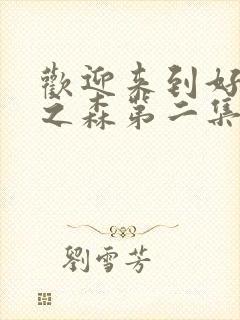 歡迎来到好
之森第二集
劉雪芳